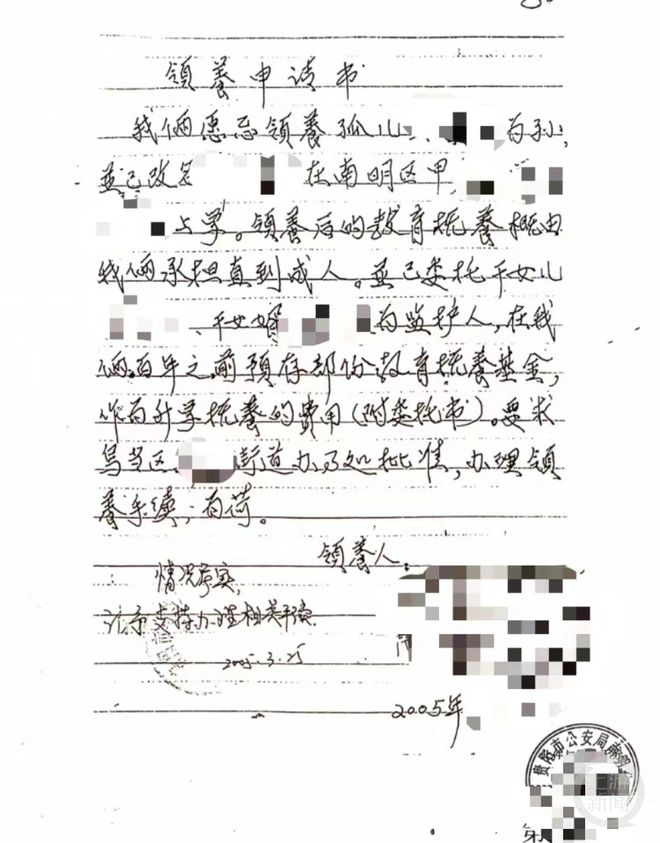 领养申请书
我俩愿意领养孤儿 为孙,
並已改名 在南明区甲
上学。领养后的教育抚养概由
我俩承担直到成人。並已委托干女儿
、干女婿 为监护人,在我
俩百年之前预存部份教育抚养基金,
作为升学抚养的费用(附委托书)。要求
乌当区 街道办事处批准,办理领
养手续,为荷。
领养人:
情况属实,
请予支持办理相关手续.
2005.3.25
2005年
贵阳市公安局南明
上游新闻
第